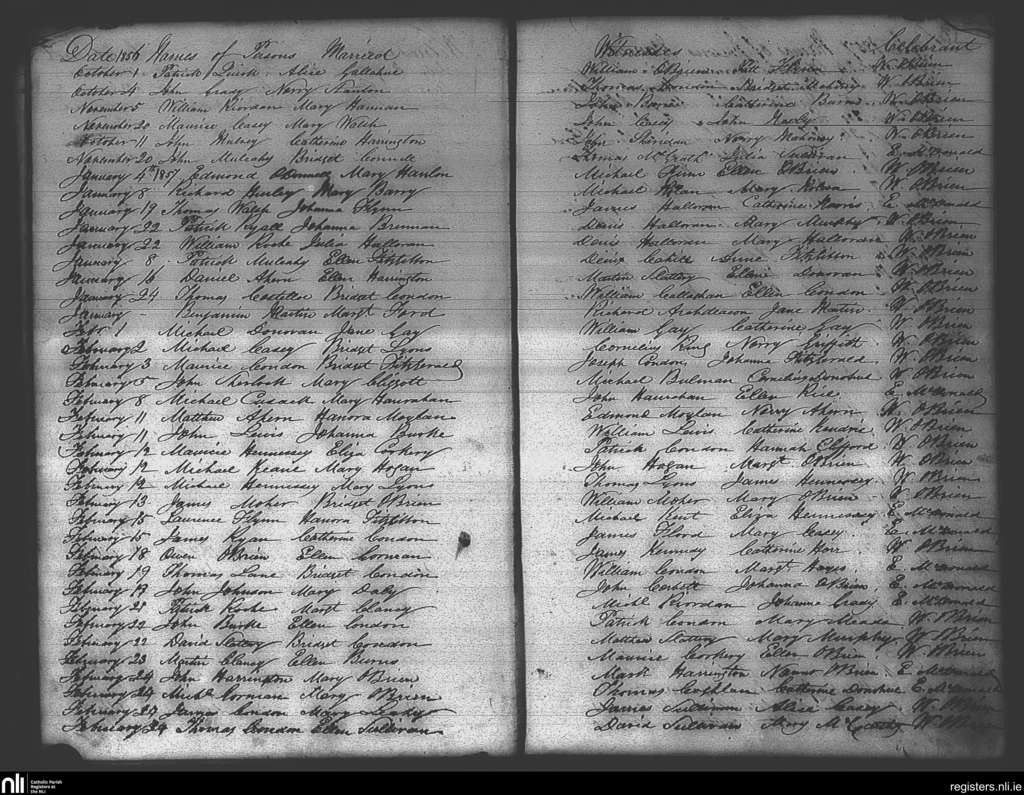 Date 1856 Names of Persons Married
October 1 Patrick Quirk Alice Callahne
October 4 John Grady Norry Hanlon
November 5 William Riordan Mary Hannan
November 20 Maurice Casey Mary Walsh
October 11 John Mulvey Catherine Harrington
November 20 John Mulcahy Bridget Connell
January 4th 1857 Edmond O'Donnell Mary Hanlon
January 8 Richard Mary Barry
January 19 Thomas Walsh Johanna Flynn
January 22 Patrick Johanna Brennan
January 22 William Roche Julia Halloran
January 8 Patrick Mulcahy Ellen Fitzgibbon
January 16 Daniel Ahern Ellen Harrington
January 24 Thomas Costelloe Bridget Condon
January - Benjamin Martin Margt Ford
Febr 1 Michael Donovan Jane Gay
February 2 Michael Casey Bridget Lyons
February 3 Maurice Condon Bridget Fitzgerald
February 5 John Sherlock Mary
February 8 Michael Cusack Mary Hanrahan
February 11 Matthew Ahern Hanora Moylan
February 11 John Lewis Johanna Burke
February 12 Maurice Hennessy Eliza Corkery
February 12 Michael Keane Mary Hogan
February 12 Michael Hennessy Mary Lyons
February 13 James Moher Bridget O'Brien
February 15 Laurence Flynn Hanora Fitzgibbon
February 15 James Ryan Catherine Condon
February 18 Owen O'Brien Ellen Gorman
February 19 Thomas Lane Bridget Condon
February 19 John Johnson Mary Daly
February 21 Patrick Roche Margt Clancy
February 22 John Burke Ellen Condon
February 22 David Slattery Bridget Condon
February 23 Martin Clancy Ellen Burns
February 24 John Harrington Mary O'Brien
February 24 Michl Gorman Mary O'Brien
February 24 James Condon Mary
February 24 Thomas Condon Ellen Sullivan
Witnesses Celebrant
William O'Brien O'Brien W. O'Brien
Thomas Bridget W. O'Brien
John Catherine Burns W. O'Brien
John Casey John W. O'Brien
John Sheridan Norry Mahoney W. O'Brien
Thomas McGrath Julia Sullivan E. McDonald
Michael Ellen O'Brien W. O'Brien
Michael Mary W. O'Brien
James Halloran Catherine Harris E. McDonald
Denis Halloran Mary Murphy W. O'Brien
Denis Halloran Mary Halloran W. O'Brien
Denis Cahill Anne Fitzgibbon W. O'Brien
Martin Slattery Ellen Donovan W. O'Brien
William Callaghan Ellen Condon W. O'Brien
Richard Archdeacon Jane Martin W. O'Brien
William Gay Catherine Gay W. O'Brien
Cornelius King Norry Griffith W. O'Brien
Joseph Condon Johanna Fitzgerald W. O'Brien
Michael Bulman Cornelius Donohue W. O'Brien
John Hanrahan Ellen Rice E. McDonald
Edmond Moylan Norry Ahern W. O'Brien
William Lewis Catherine W. O'Brien
Patrick Condon Hannah Clifford W. O'Brien
John Hogan Margt O'Brien W. O'Brien
Thomas Lyons James Hennessy W. O'Brien
William Moher Mary O'Brien W. O'Brien
Michael Kent Eliza Hennessy E. McDonald
James Flord Mary Casey E. McDonald
James Kennedy Catherine W. O'Brien
William Condon Margt Hayes E. McDonald
John Corbett Johanna O'Brien E. McDonald
Michl Riordan Johanna Grady E. McDonald
Patrick Condon Mary Meade W. O'Brien
Matthew Slattery Mary Murphy W. O'Brien
Maurice Corkery Ellen O'Brien W. O'Brien
Mark Harrington Nanno O'Brien E. McDonald
Thomas Coghlan Catherine Donohue E. McDonald
James Sullivan Alice Casey W. O'Brien
David Sullivan Mary McCarthy W. O'Brien
nli Catholic Parish
Registers at
the NLI
registers.nli.ie